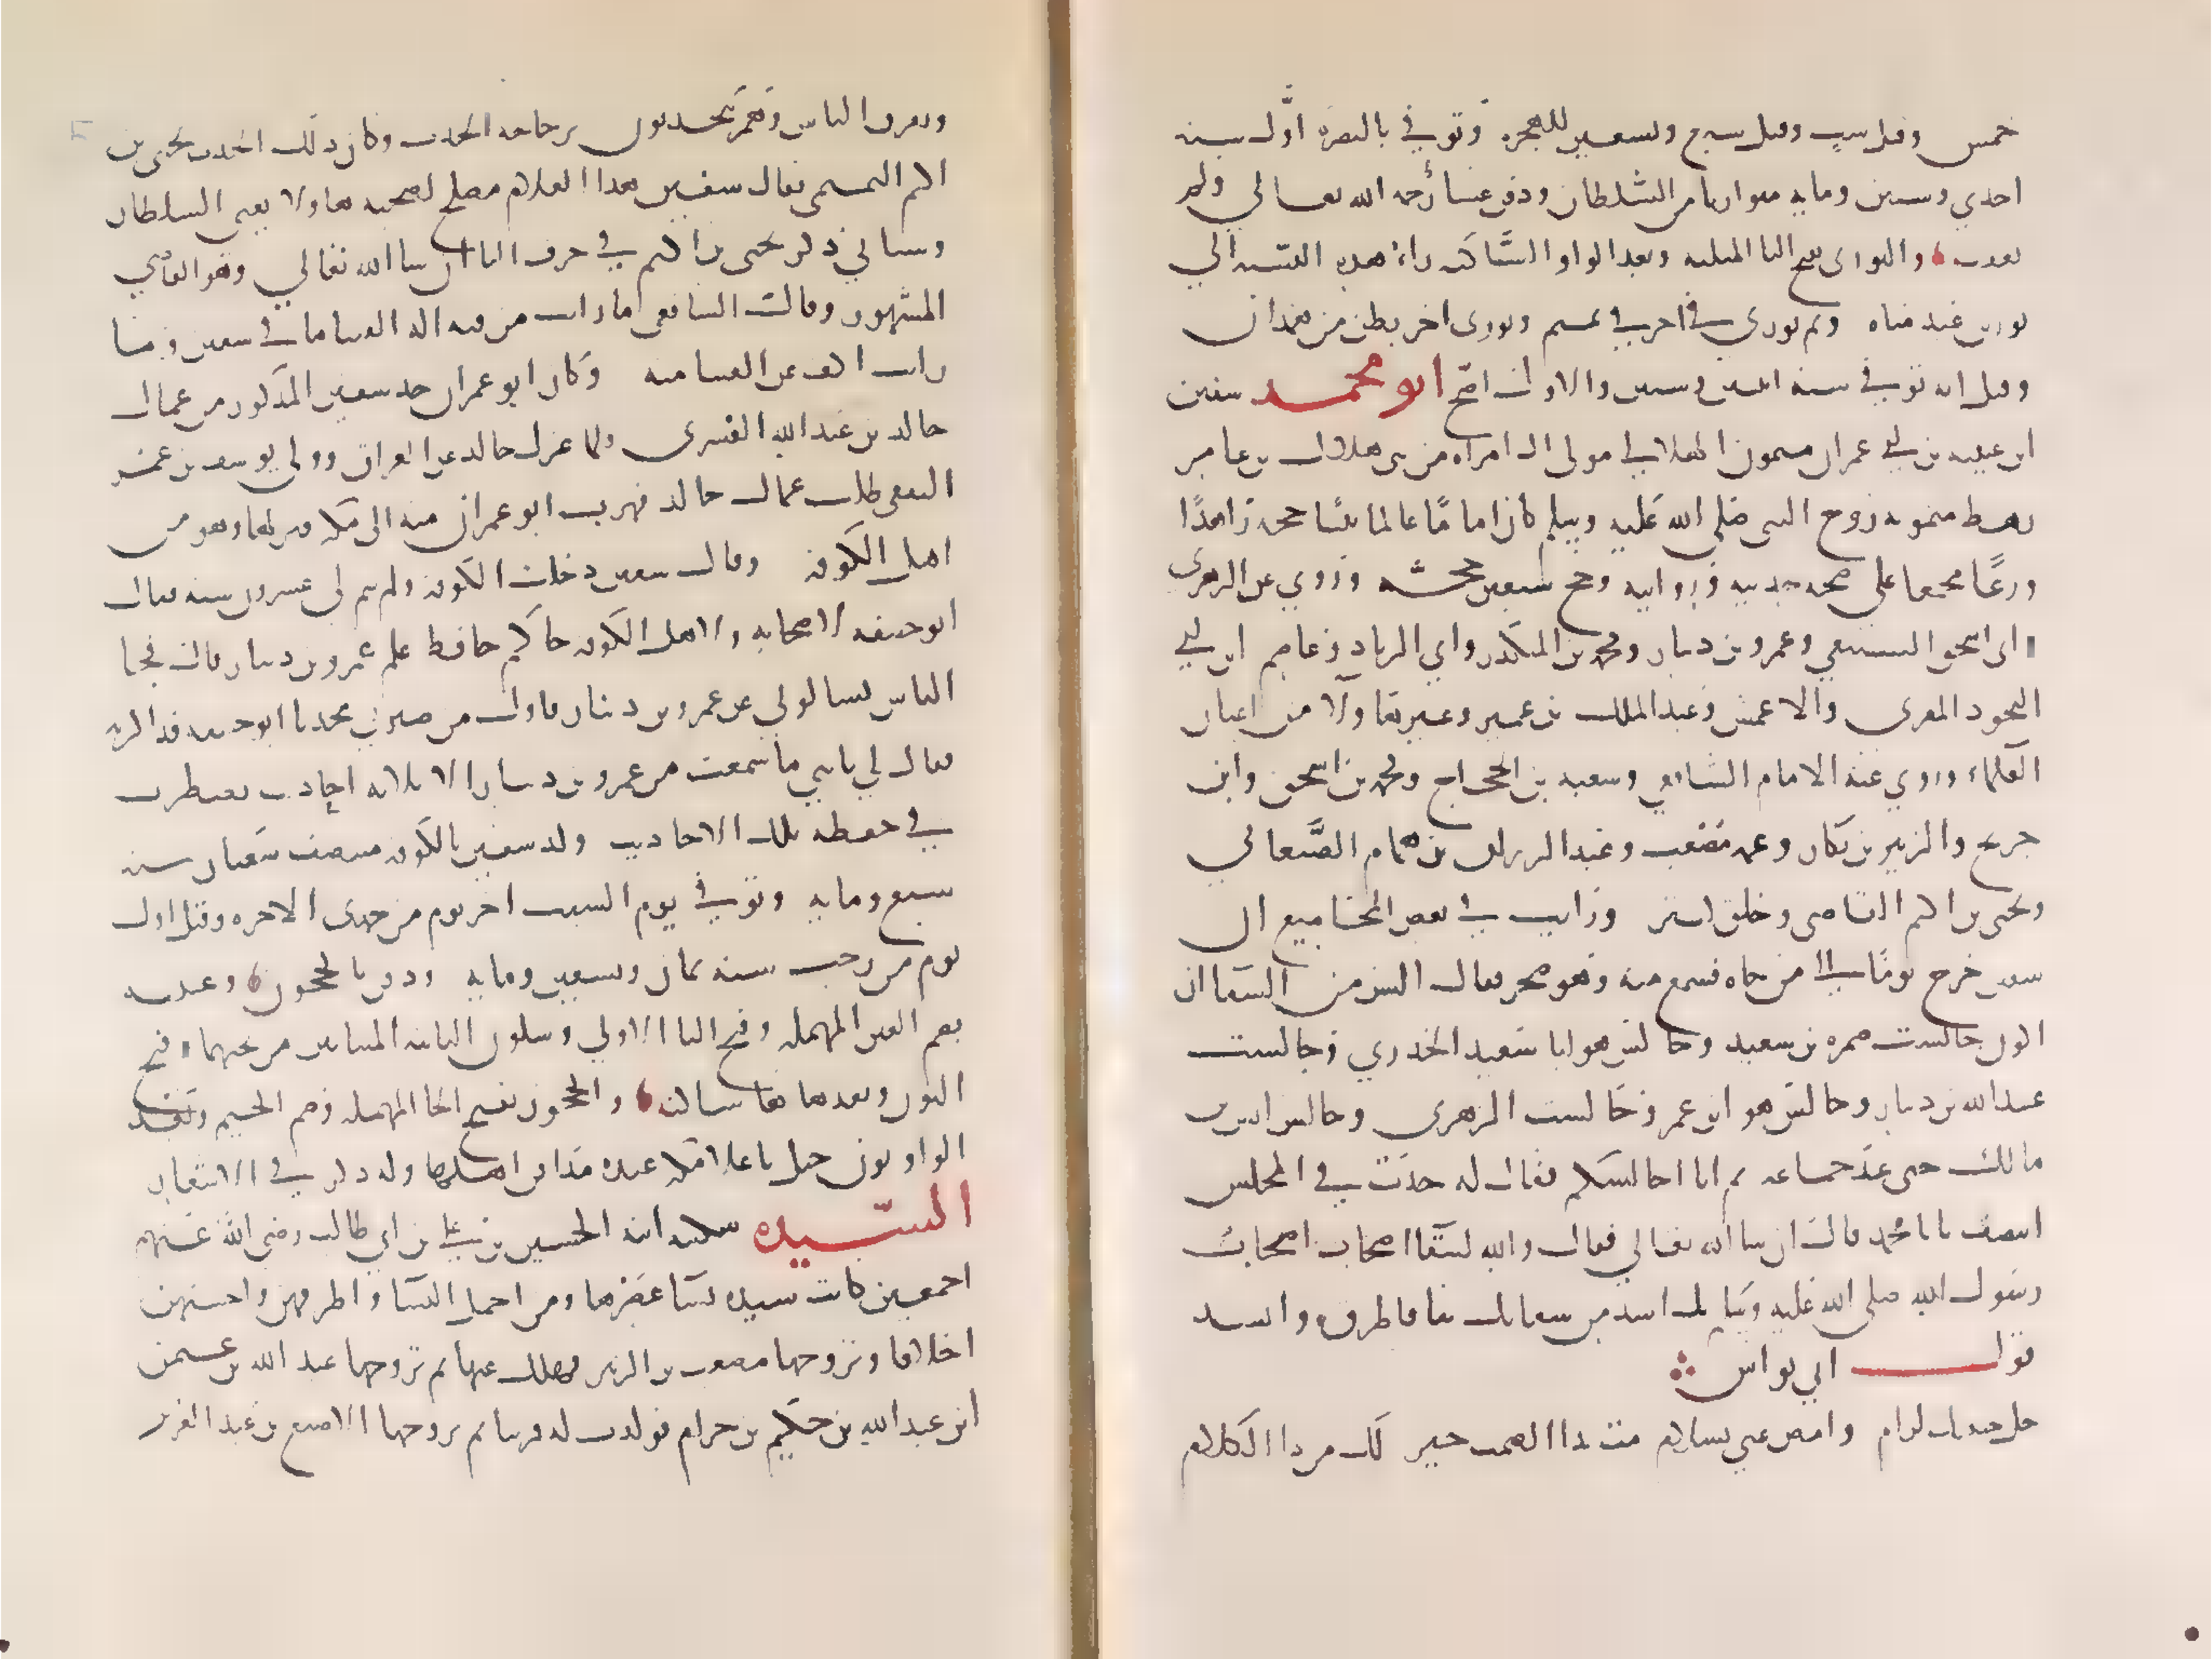 خمس وقيل ست وقيل سبع وتسعين للهجرة وتوفي بالبصرة اول سنة
احدي وستين وماية متواريا من السلطان ودفن عشا رحمه الله تعالي ولم
يعقب والثوري بفتح الثا المثلثة وبعد الواو الساكنة راء هذه النسبة الي
ثور بن عبد مناه وثم ثوري اخر في تميم وثوري اخر بطن من همدان
وقيل انه توفي سنة اثنين وستين والاول اصح ابو محمد سفين
ابن عيينه بن ابي عمران ميمون الهلالي مولي امراه من بني هلال بن عامر
رهط ميمونه زوج النبي صلي الله عليه وسلم كان اماما عالما ثبتا حجه زاهدا
ورعا مجمعا علي صحه حديثه وروايته وحج سبعين حجة وروي عن الزهري
ابي اسحق السبيعي وعمرو بن دينار ومحمد بن المنكدر وابي الزناد وعاصم ابن ابي
النجود المقري والاعمش وعبد الملك بن عمير وغير هاولا من اعيان
العلماء وروي عنه الامام الشافعي وشعبه بن الحجاج ومحمد بن اسحق وابن
جريج والزبير بن بكار وعمه مصعب وعبد الرزاق بن همام الصنعاني
ويحيي بن اكثم القاضي وخلق كثير ورايت في بعض المجاميع ان
سفين خرج يوما الي من جاه فسمع منه وهو ضجر فقال اليس من الشقا ان
اكون جالست ضمره بن سعيد وجالس هو ابا سعيد الخدري وجالست
عبد الله بن دينار وجالس هو ابن عمر وجالست الزهري وجالس انس بن
مالك حتي عد جماعه ثم انا اجالسكم فقال له حدث في المجلس
انتصف يا ابا محمد قال ان شا الله تعالي فقال والله لشقا اصحاب اصحاب
رسول الله صلي الله عليه وسلم بك اشد من شقايك بنا فاطرق وانشد
قول ابي نواس
خل جنبيك لرام وامض عني بسلام مت بدا الصمت خير لك من دا الكلام
وتفرق الناس وهم يتحدثون برجاحه الحدث وكان ذلك الحدث يحيي بن
اكثم التميمي فقال سفين هذا الغلام يصلح لصحبه هاولا يعني السلطان
وسياتي ذكر يحيي بن اكثم في حرف اليا ان شا الله تعالي وهو القاضي
المشهور وقال الشافعي ما رايت من فيه اله الفتيا ما في سفين وما
رايت اكف عن الفتيا منه وكان ابو عمران جد سفين المذكور من عمال
خالد بن عبد الله القسري ولما عزل خالد عن العراق وولي يوسف بن عمر
الثقفي طلب عمال خالد فهرب ابو عمران منه الي مكه فنزلها وهو من
اهل الكوفه وقال سفين دخلت الكوفه ولم يتم لي عشرون سنه فقال
ابو حنيفه لاصحابه ولاهل الكوفه جاكم حافظ علم عمرو بن دينار قال فجا
الناس يسالوني عن عمرو بن دينار فاول من صيرني محدثا ابو حنيفه فذاكرته
فقال لي يابني ما سمعت من عمرو بن دينار الا ثلاثه احاديث يضطرب
في حفظه تلك الاحاديث ولد سفين بالكوفه منتصف شعبان سنه
سبع وماية وتوفي يوم السبت اخر يوم من جمدي الاخره وقيل اول
يوم من رجب سنة ثمان وتسعين وماية ودفن بالحجون وعيينه
بضم العين المهمله وفتح اليا الاولي وسكون الثانيه المثناتين من تحتهما وفتح
النون وبعدها ها ساكنه والحجون بفتح الحا المهمله وضم الجيم وبعد
الواو نون جبل باعلا مكه عنده مدافن اهلها وله ذكر في الاشعار
السيده سكينه ابنه الحسين بن علي بن ابي طالب رضي الله عنهم
اجمعين كانت سيده نسا عصرها ومن اجمل النسا واظرفهن واحسنهن
اخلاقا وتزوجها مصعب بن الزبير فهلك عنها ثم تزوجها عبد الله بن عثمن
ابن عبد الله بن حكيم بن حزام فولدت له قرينا ثم تزوجها الاصبغ بن عبد العزيز